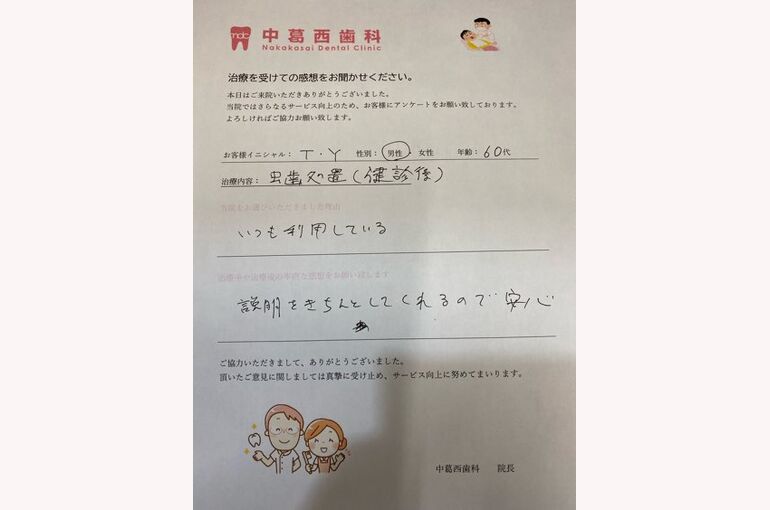 mdc
中葛西歯科
Nakakasai Dental Clinic
治療を受けての感想をお聞かせください。
本日はご来院いただきありがとうございました。
当院ではさらなるサービス向上のため、お客様にアンケートをお願い致しております。
よろしければご協力お願い致します。
お客様イニシャル： T・Y 性別：男性・女性 年齢：60代
治療内容： 虫歯処置(健診後)
当院をお選びいただきました理由
いつも利用している
治療中や治療後の率直な感想をお願い致します
説明をきちんとしてくれるので安心
ご協力いただきまして、ありがとうございました。
頂いたご意見に関しましては真摯に受け止め、サービス向上に努めてまいります。
中葛西歯科 院長